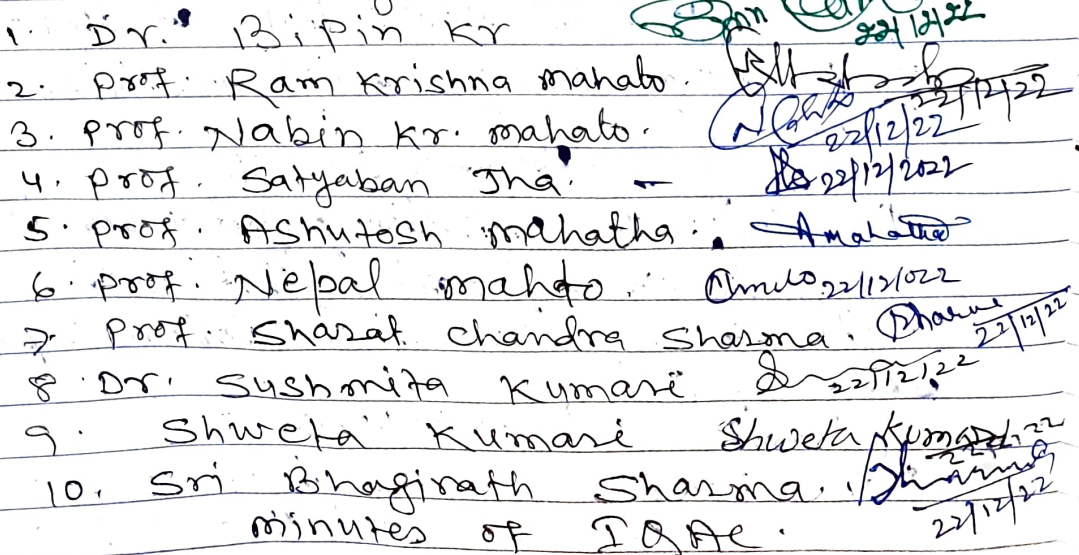 1. Dr. Bipin Kr 22/12/22
2. Prof. Ram Krishna mahato. 22/12/22
3. Prof. Nabin Kr. mahato. 22/12/22
4. Prof. Satyaban Jha. - 22/12/2022
5. Prof. Ashutosh mahatha. Amahatha
6. Prof. Nepal mahto. 22/12/022
7. Prof. Sharat Chandra Sharma. Sharma 22/12/22
8. Dr. Sushmita Kumari 22/12/22
9. Shweta Kumari Shweta Kumari 22/12/22
10. Sri Bhagirath Sharma. 22/12/22
minutes of IQAC.